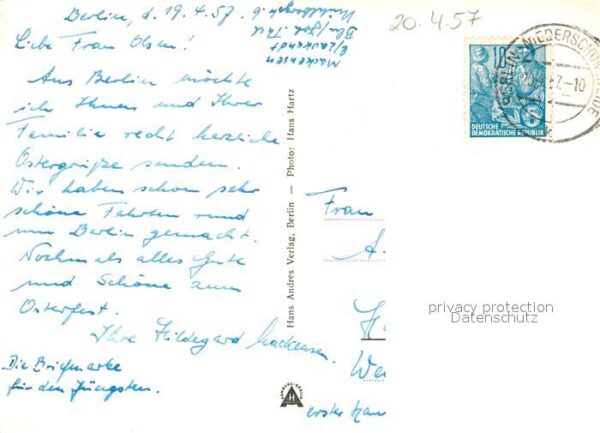 Berlin, d. 19.4.57.
Liebe Frau Olsen!
Aus Berlin möchte
ich Ihnen und Ihrer
Familie recht herzliche
Ostergrüße senden.
Wir haben schon sehr
schöne Fahrten rund
um Berlin gemacht.
Nochmals alles Gute
und Schöne zum
Osterfest.
Ihre Hildegard Mackensen.
Die Briefmarke
für den Jüngsten.
Mackensen
20.4.57
10
DEUTSCHE
DEMOKRATISCHE REPUBLIK
Hans Andres Verlag, Berlin — Photo: Hans Hartz
Frau
A.
privacy protection
Datenschutz
HAMBURG-BERLIN
erster